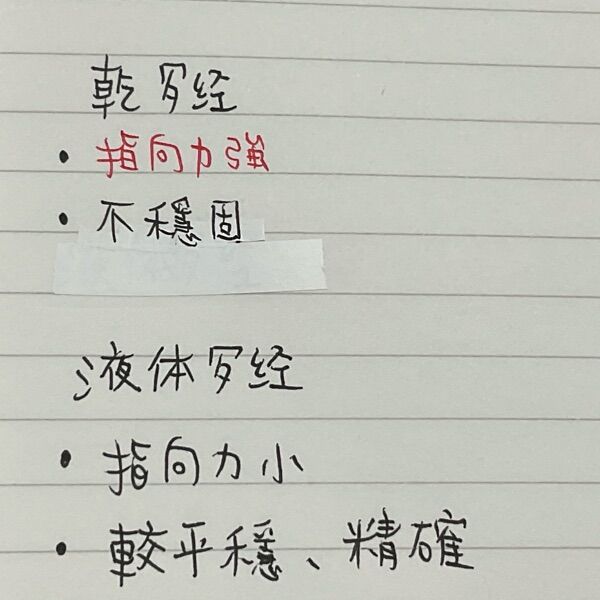 乾罗经
• 指向力強
• 不穩固
液体罗经
• 指向力小
• 較平穩、精確